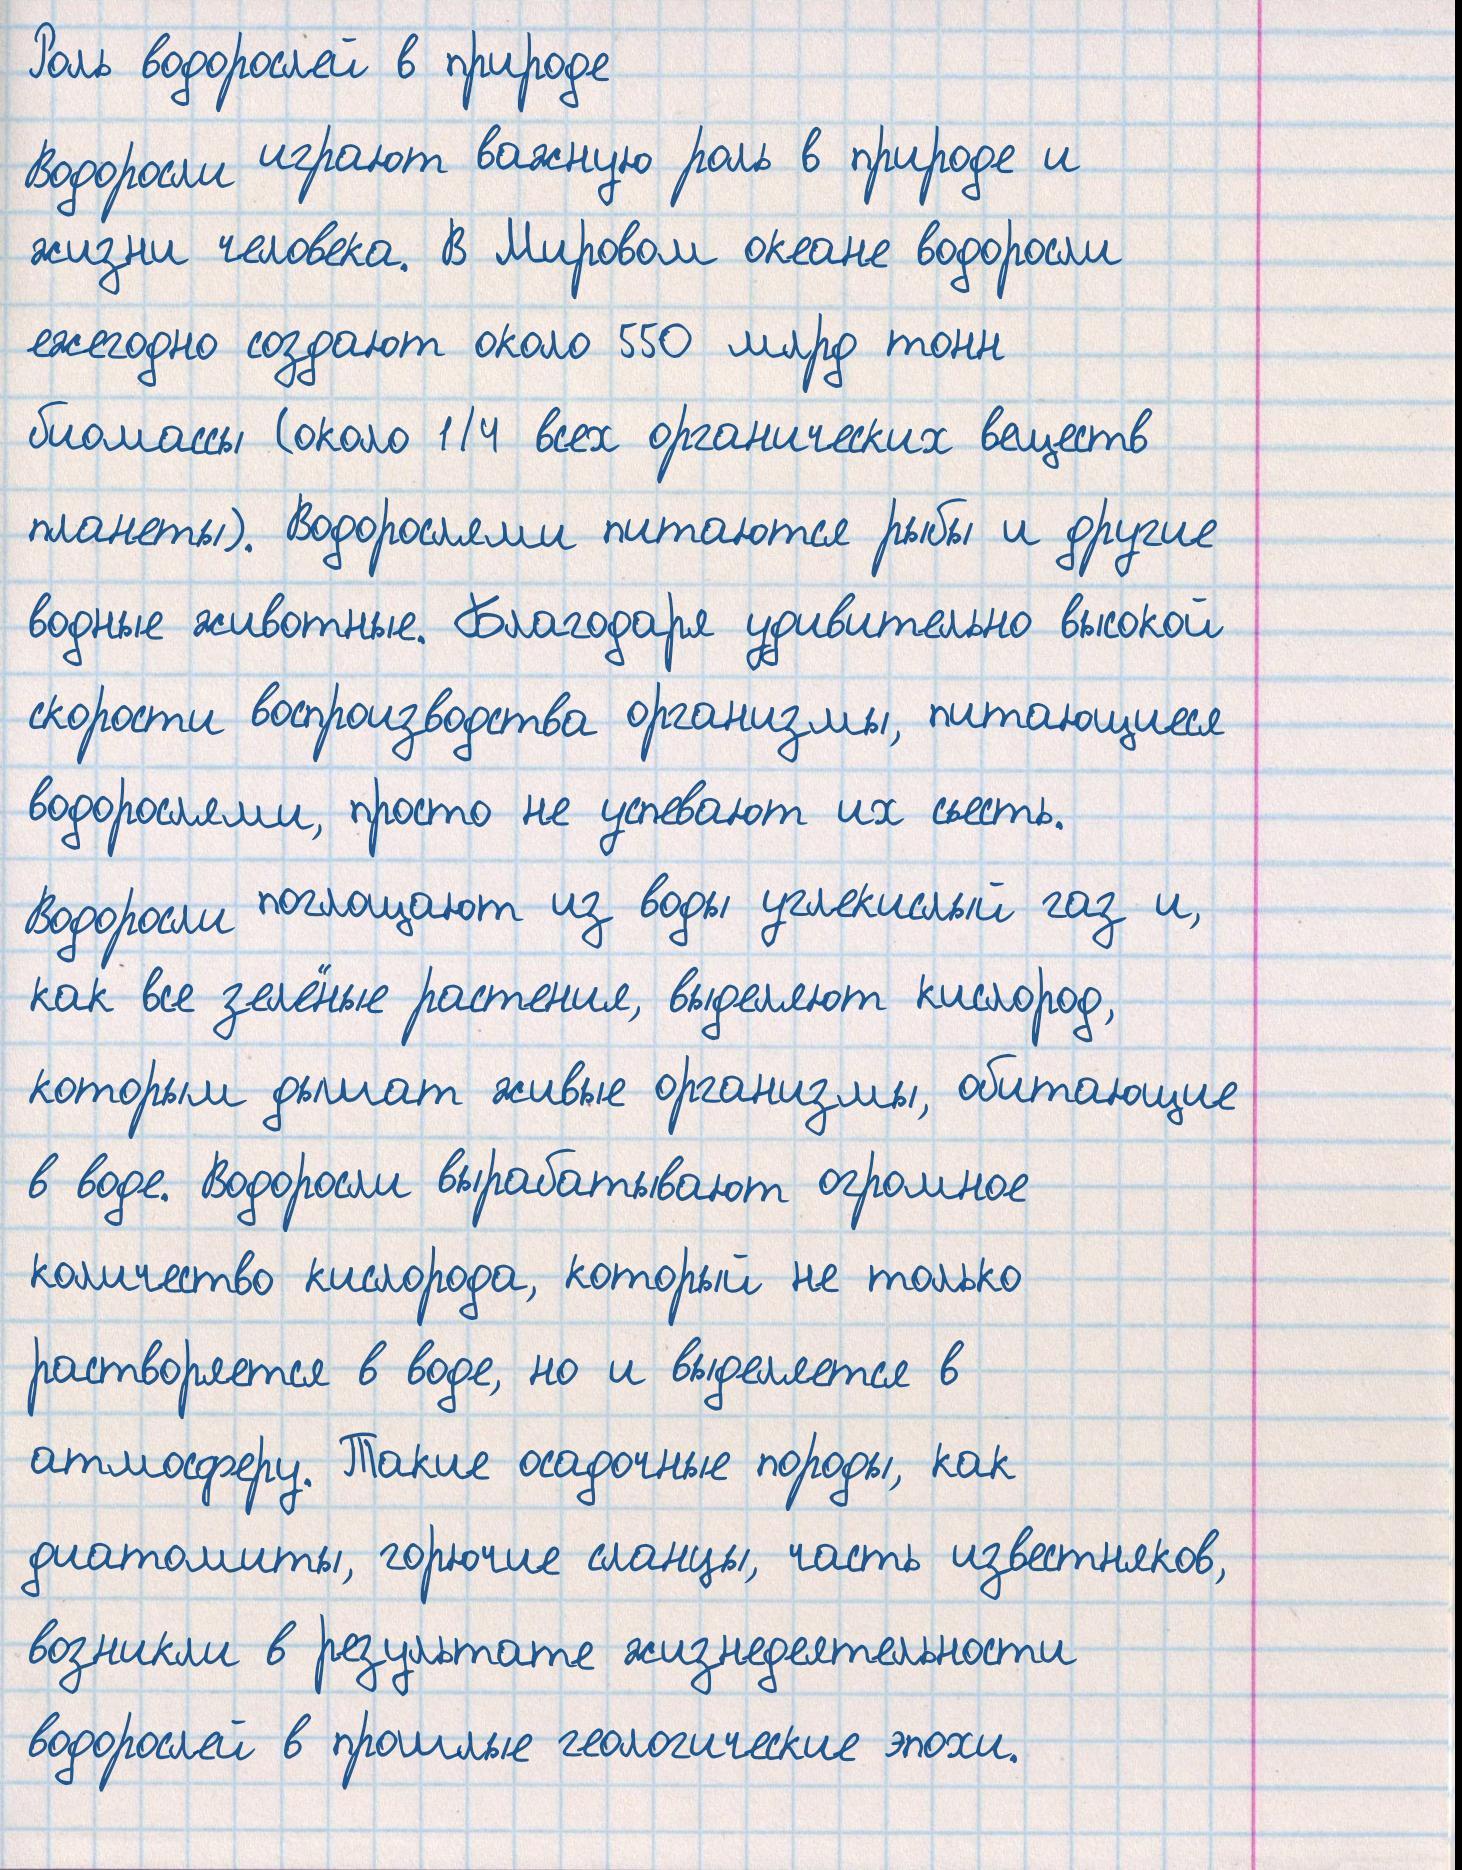 Роль водорослей в природе
Водоросли играют важную роль в природе и
жизни человека. В Мировом океане водоросли
ежегодно создают около 550 млрд тонн
биомассы (около 1/4 всех органических веществ
планеты). Водорослями питаются рыбы и другие
водные животные. Благодаря удивительно высокой
скорости воспроизводства организмы, питающиеся
водорослями, просто не успевают их сьесть.
Водоросли поглощают из воды углекислый газ и,
как все зелёные растения, выделяют кислород,
которым дышат живые организмы, обитающие
в воде. Водоросли вырабатывают огромное
количество кислорода, который не только
растворяется в воде, но и выделяется в
атмосферу. Такие осадочные породы, как
диатомиты, горючие сланцы, часть известняков,
возникли в результате жизнедеятельности
водорослей в прошлые геологические эпохи.